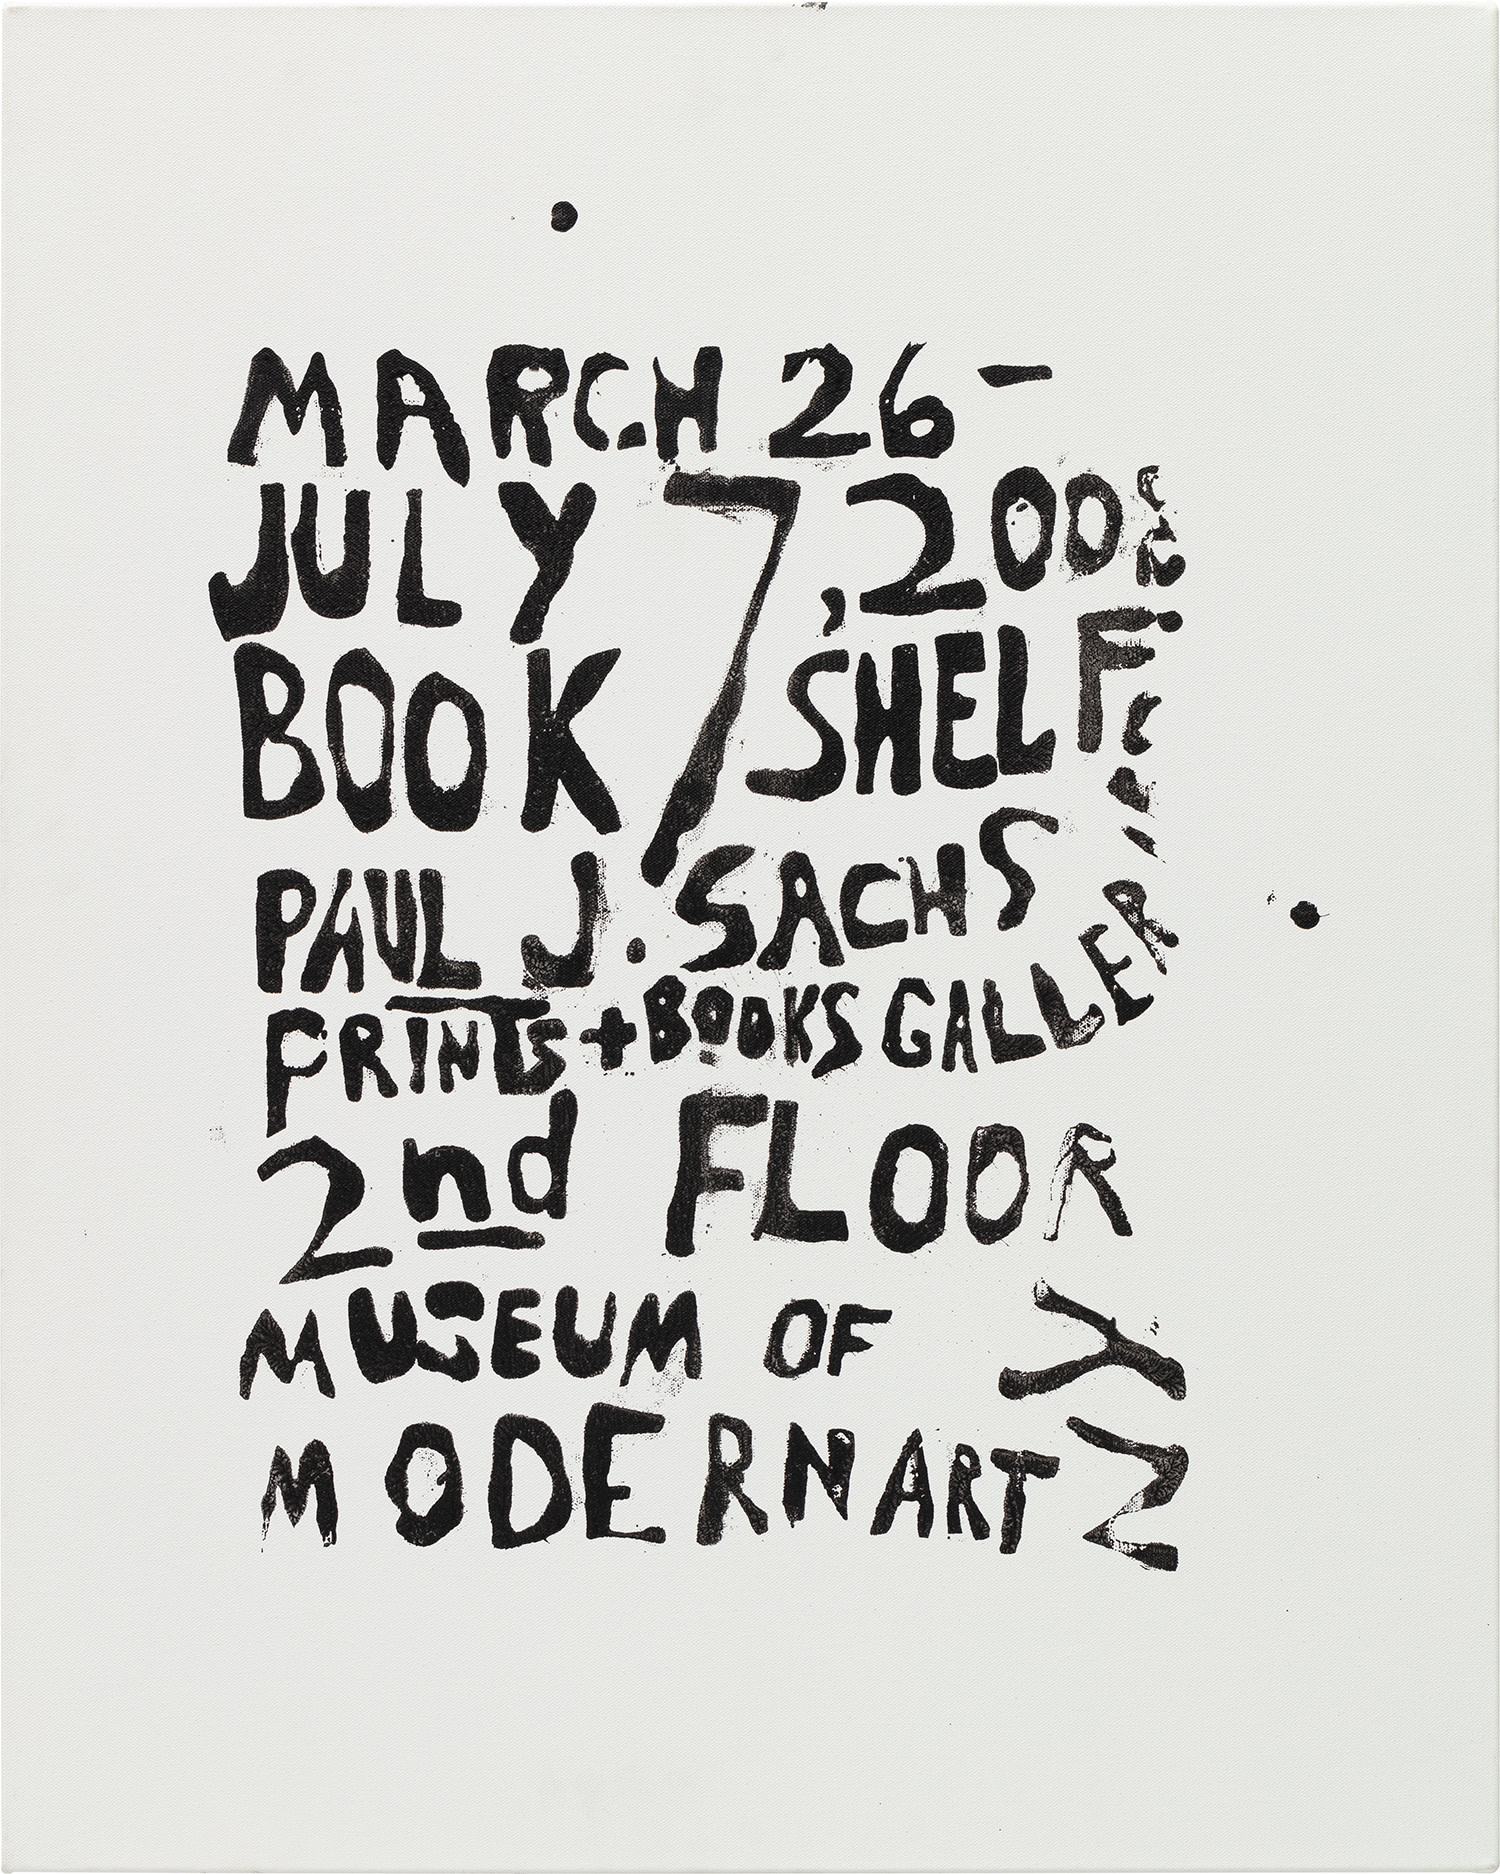 MARCH 26 –
JULY 7, 2008
BOOK SHELF
PAUL J. SACHS
PRINTS + BOOKS GALLERY
2nd FLOOR
MUSEUM OF
MODERN ART
NY